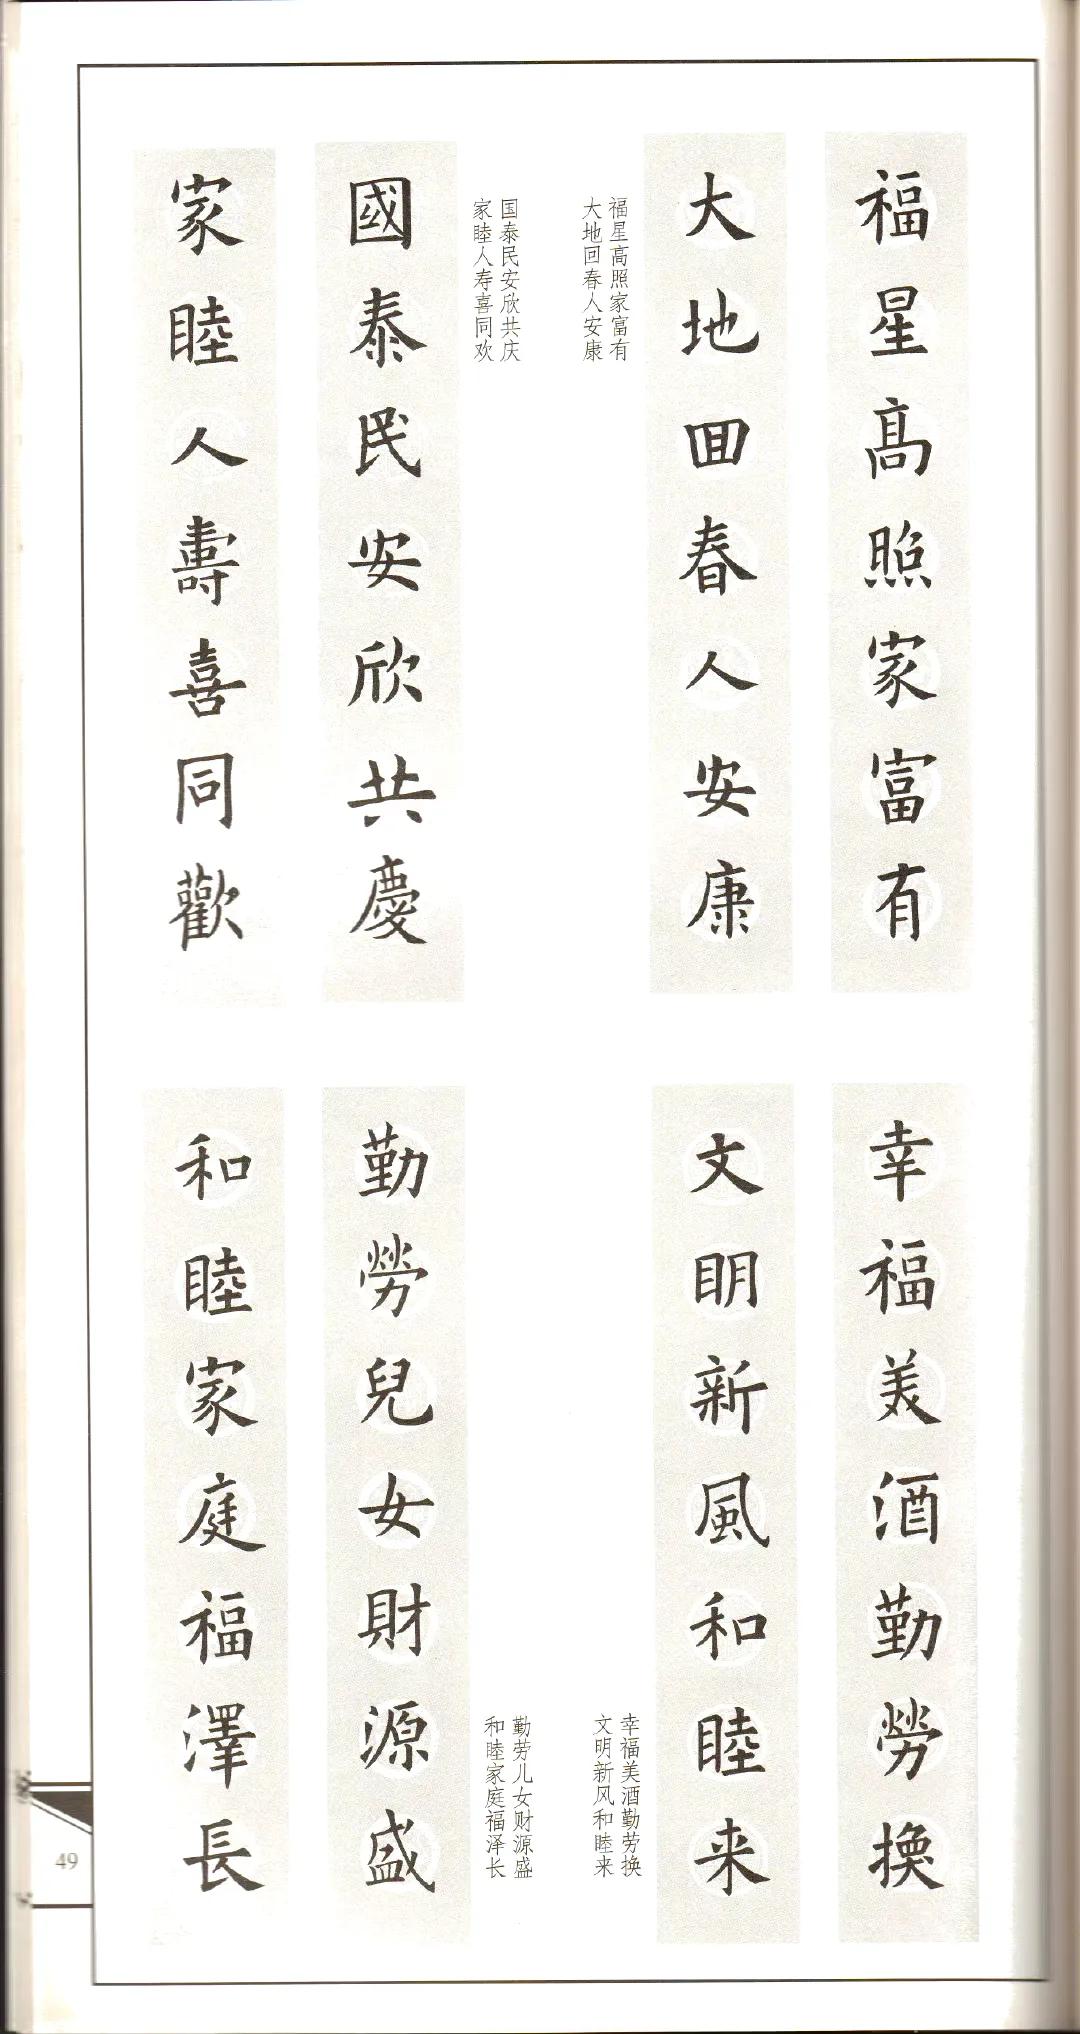 福星高照家富有
大地回春人安康
福星高照家富有
大地回春人安康
國泰民安欣共慶
家睦人壽喜同歡
国泰民安欣共庆
家睦人寿喜同欢
幸福美酒勤勞換
文明新風和睦来
幸福美酒勤劳换
文明新风和睦来
勤勞兒女財源盛
和睦家庭福澤長
勤劳儿女财源盛
和睦家庭福泽长
49